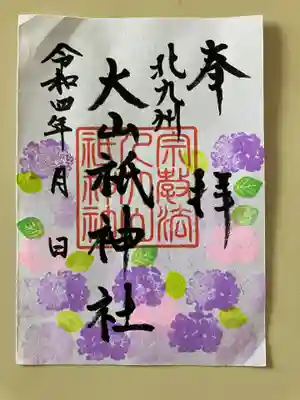 奉拝
北九州
大山祇神社
令和四年 月 日
宗教法
人大山
祇神社